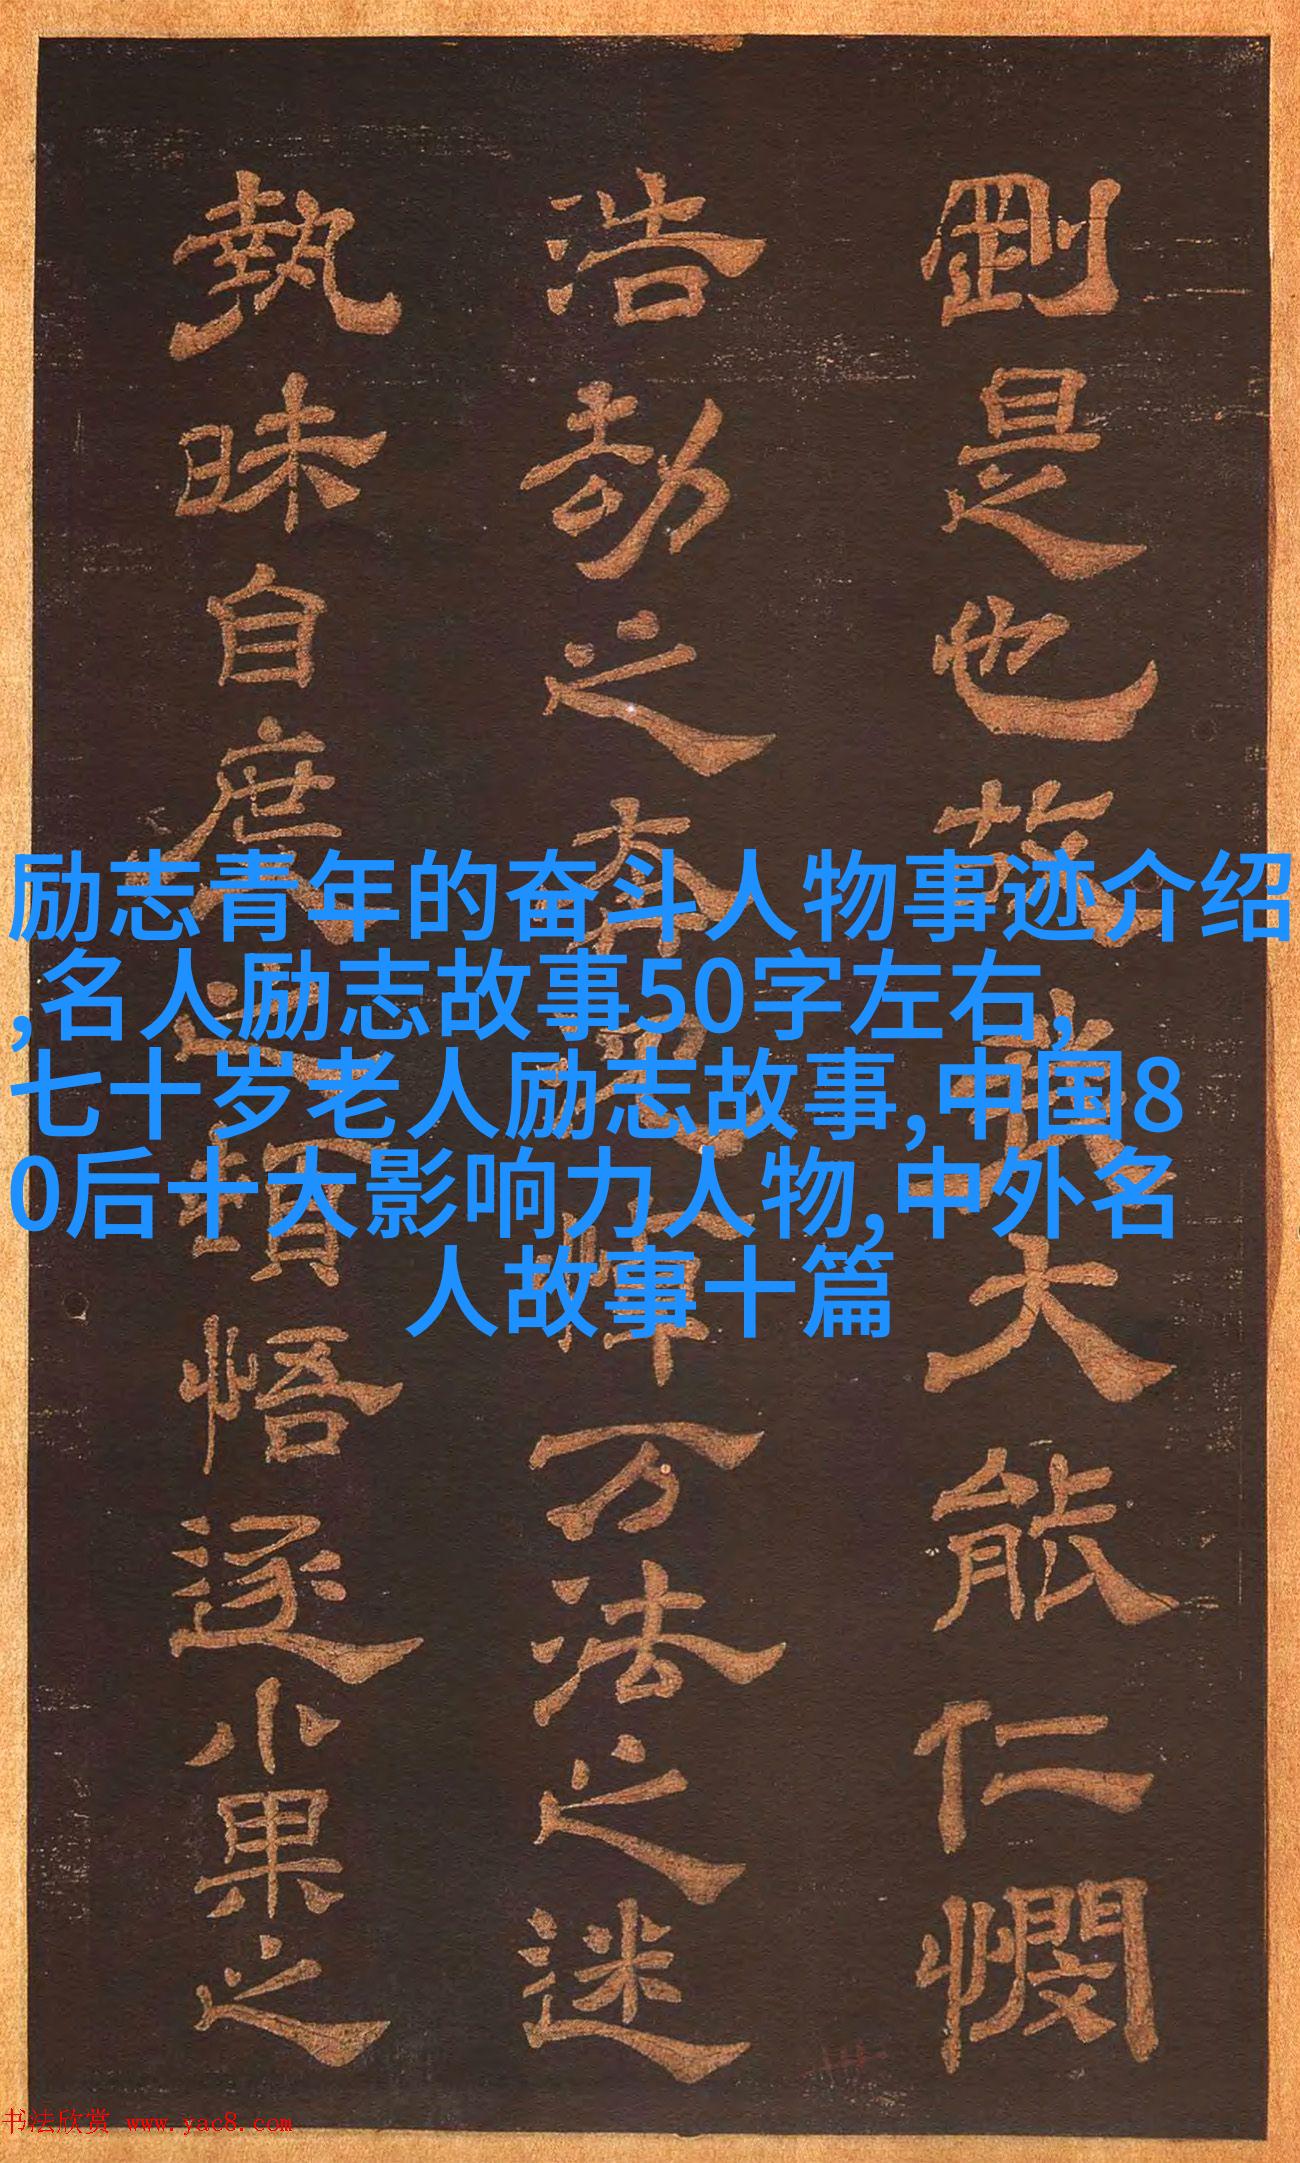 剛是也故張大能仁憫
浩劫之
万法之迷
執昧自度
頓悟遂小果之
励志青年的奋斗人物事迹介绍
,名人励志故事50字左右,
七十岁老人励志故事,中国8
0后十大影响力人物,中外名
人故事十篇
书法欣赏 www.yac8.com